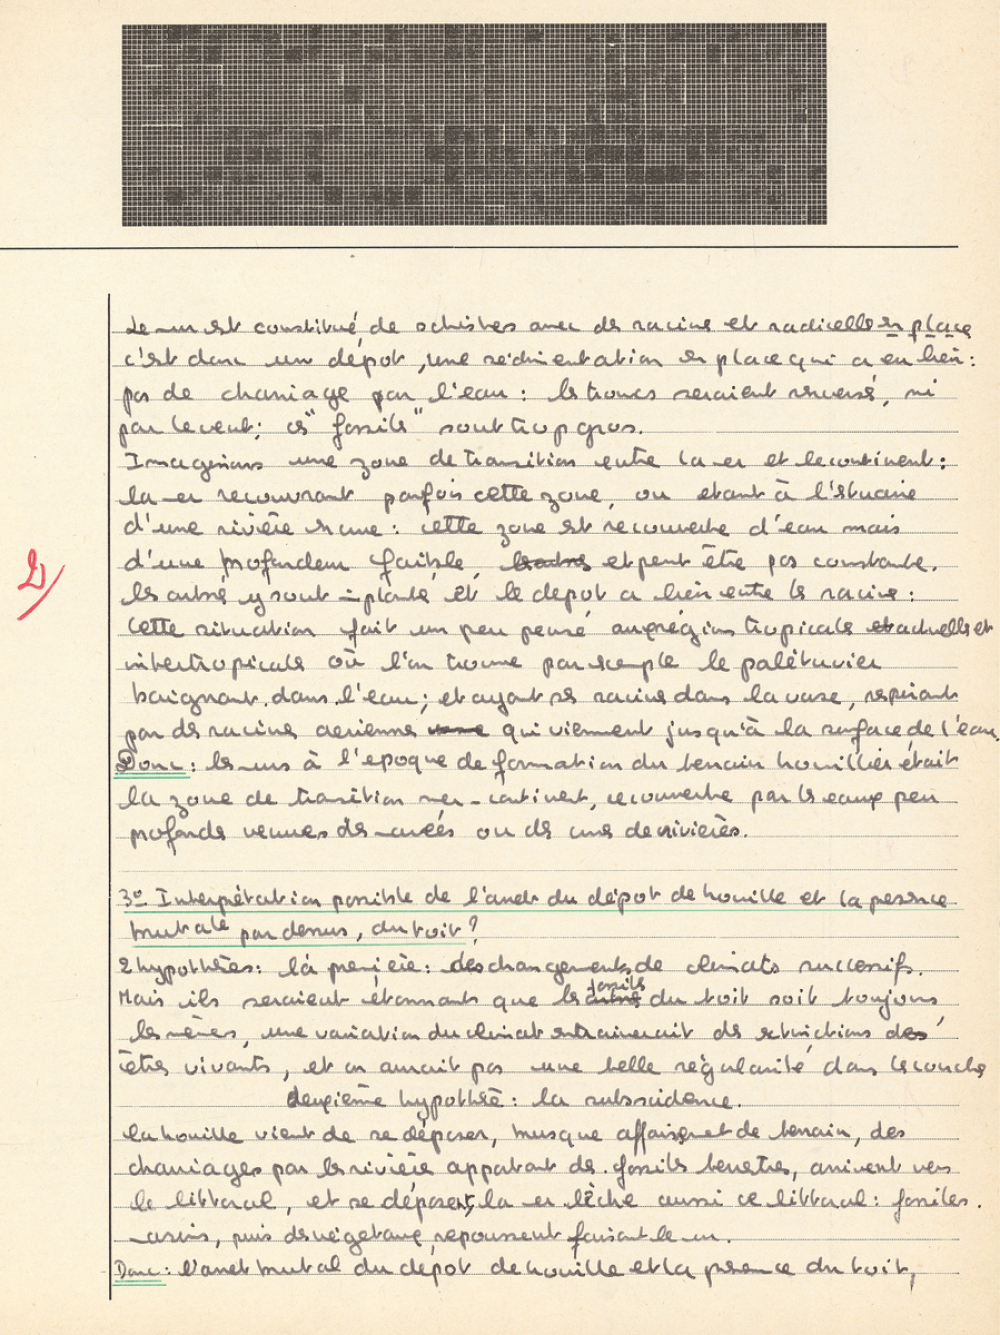 Le mur est constitué de schistes avec des racines et radicelles en place
c'est donc un dépot, une sédimentation en place qui a eu lieu:
pas de charriage par l'eau: les troncs seraient renversé, ni
par le vent; ces "fossiles" sont trop gros.
Imaginons une zone de transition entre la mer et le continent:
la mer recouvrant parfois cette zone, ou etant à l'estuaire
d'une rivière : cette zone est recouverte d'eau mais
d'une profondeur faible, et peut être pas constante.
les arbres y sont implantés et le depot a lieu entre les racines:
Cette situation fait un peu pensé aux régions tropicales actuelles et
intertropicales où l'on trouve par exemple le palétuvier
baignant dans l'eau; et ayant ses racines dans la vase, respirant
par des racines aeriennes qui viennent jusqu'à la surface de l'eau.
Donc: les murs à l'epoque de formation du terrain houillier était
la zone de transition mer-continent, recouverte par les eaux peu
profondes venues des marées ou des crues de rivières.
3º Interprétation possible de l'arret du dépot de houille et la présence
brutale par dessus, du toit?
2 hypothèses: la première: des changements de climats successifs.
Mais ils seraient étonnants que les fossiles du toit soit toujours
les mêmes, une variation du climat entrainerait des extinctions des
êtres vivants, et on aurait pas une telle régularité dans les couches
deuxième hypothèse: la subsidence.
la houille vient de se déposer, brusque affaissement de terrain, des
charriages par les rivières apportant des fossiles terrestres, arrivent vers
le littoral, et se déposent, la mer lèche aussi ce littoral: fossiles
marins, puis des végétaux repoussent faisant le mur.
Donc: l'arret brutal du depot de houille et la présence du toit,
2)